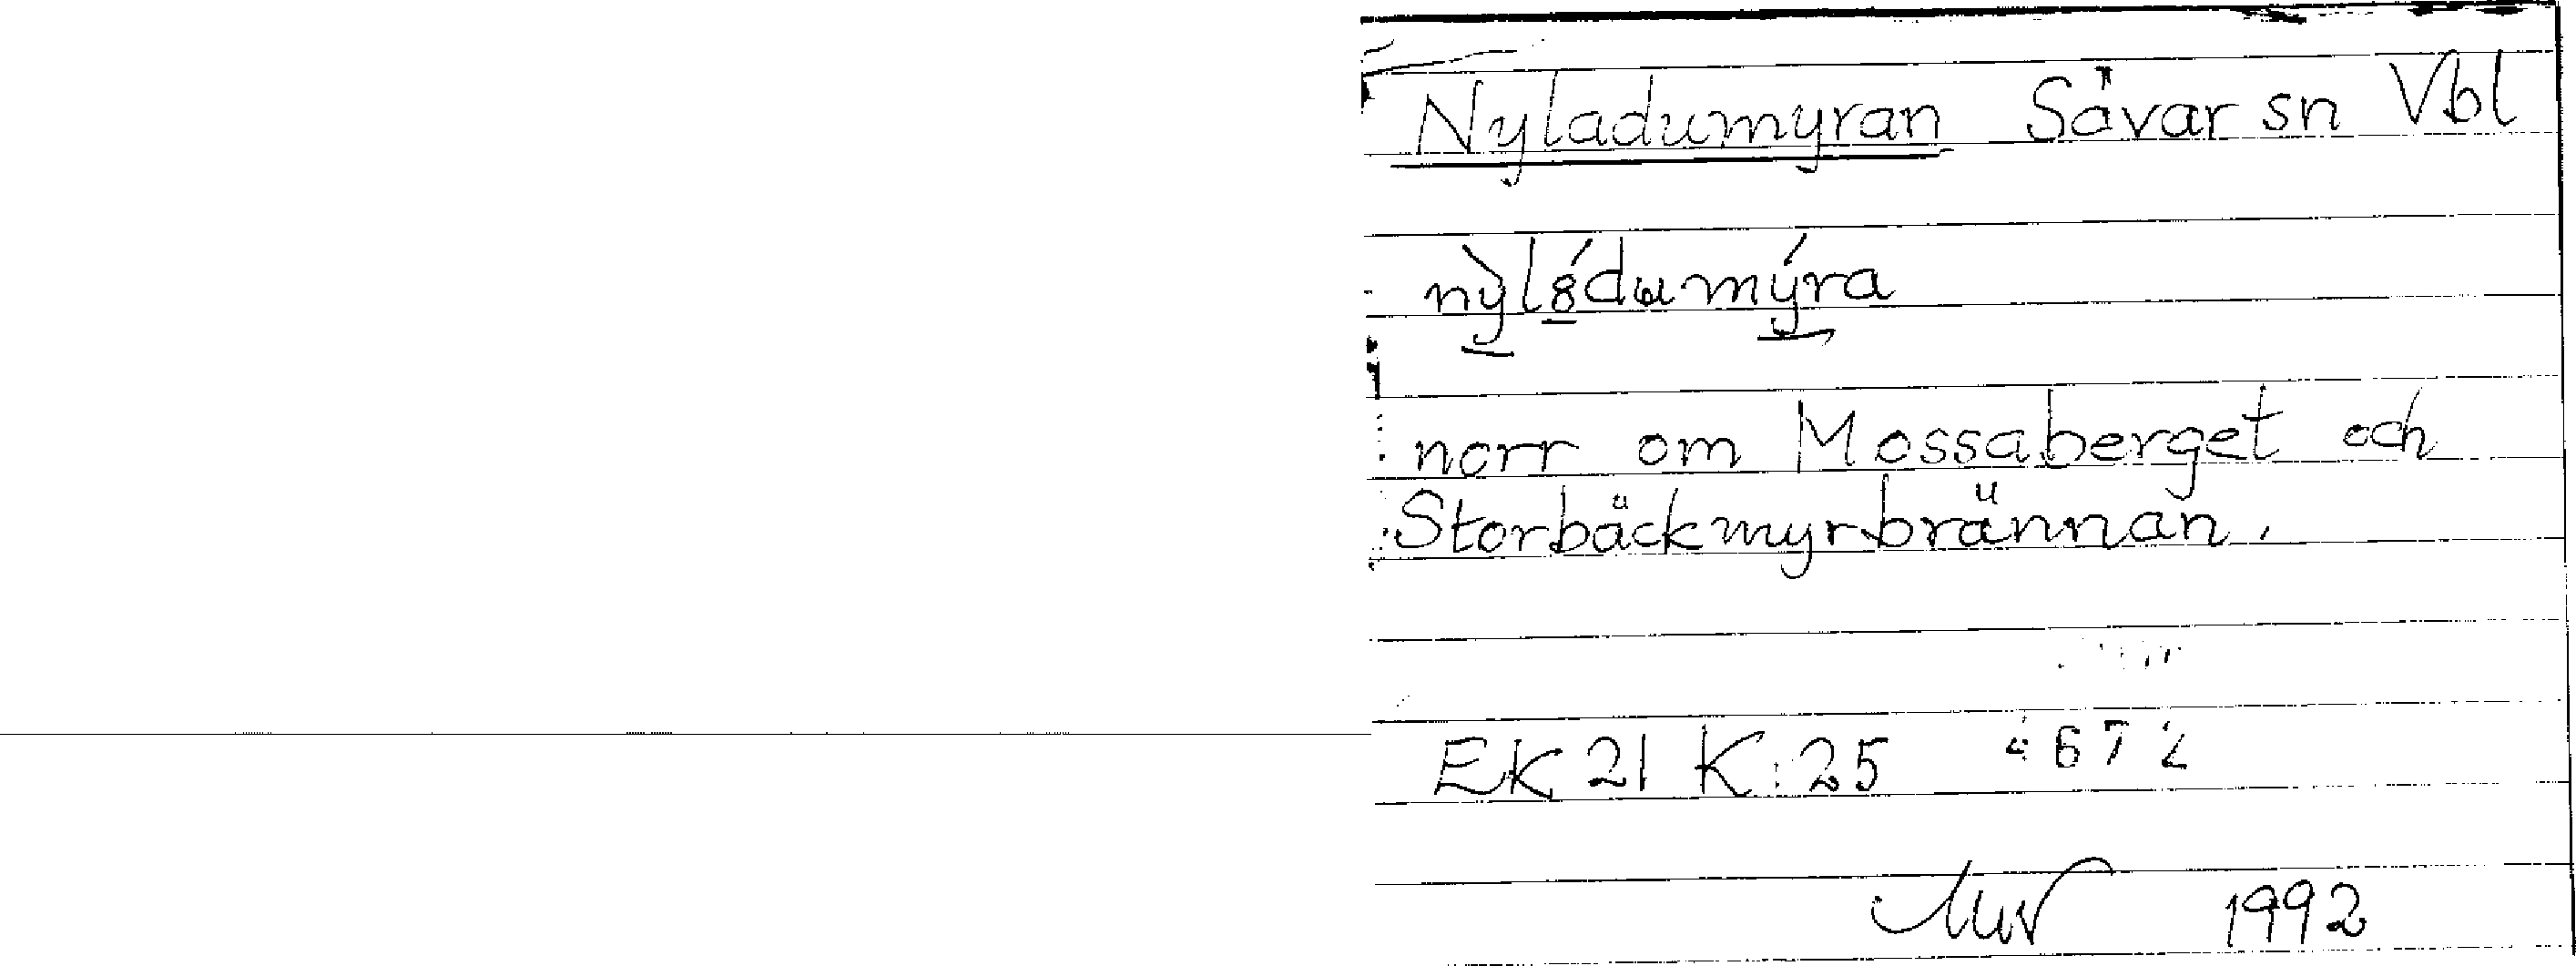 Nyladumyran Sävar sn Vbl
nỳl8́dumýra
norr om Mossaberget och
Storbäckmyrbrännan.
EK 21 K:25 4672
1992